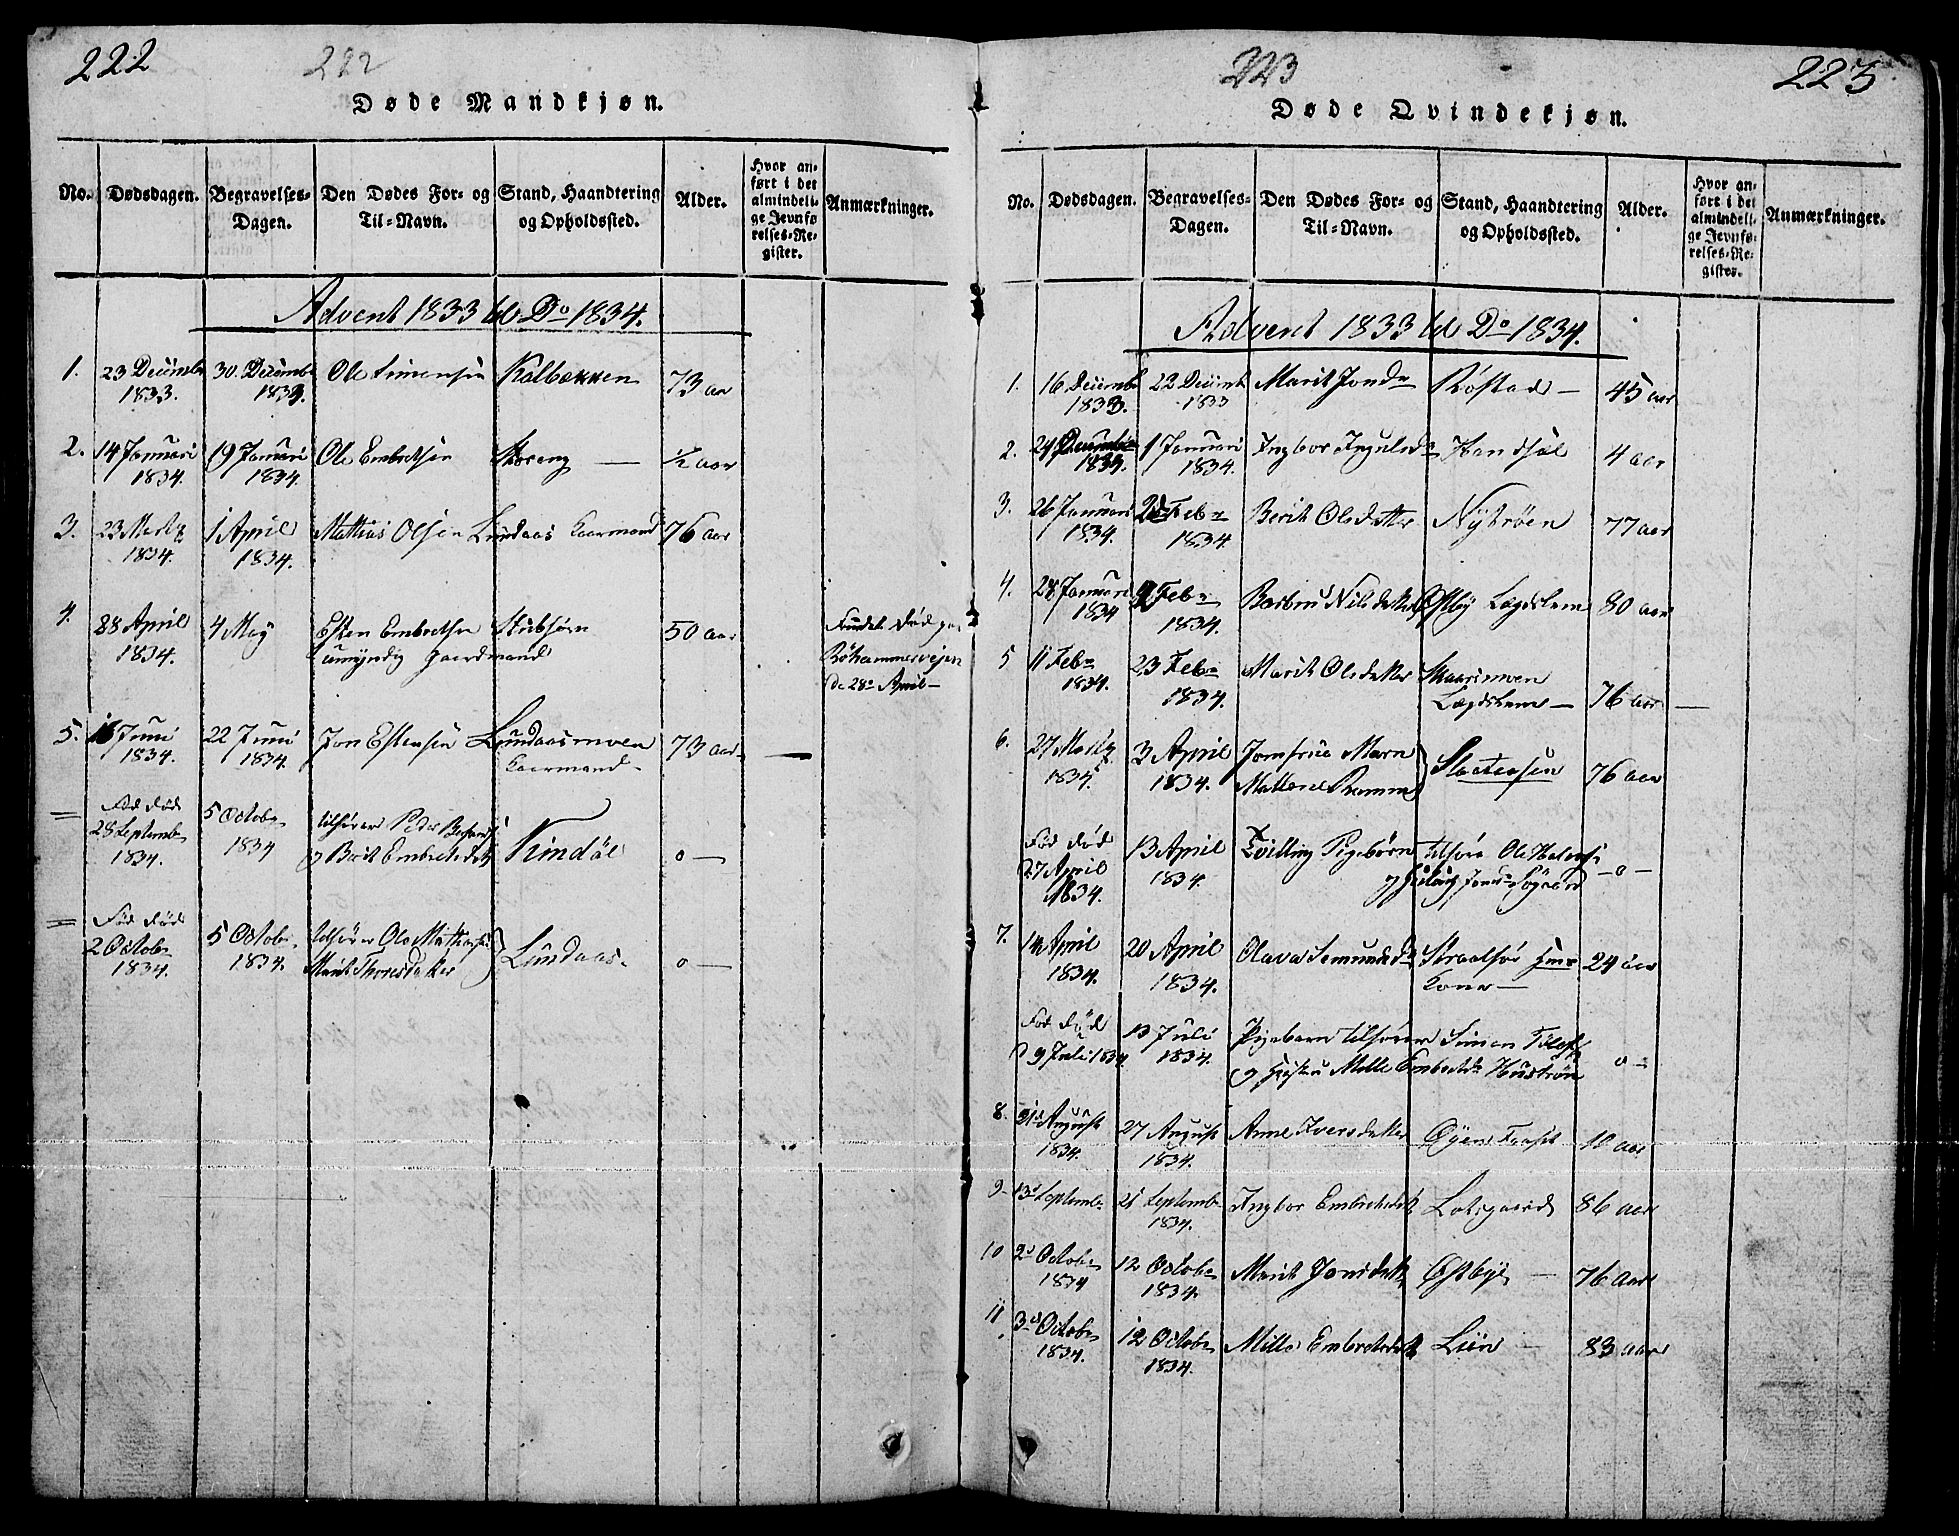 222
222
Døde Mandkjøn.
No. Dødsdagen. Begravelses-Dagen. Den Dødes For- og Til-Navn. Stand, Haandtering og Opholdssted. Alder. Hvor anført i det almindelige Jevnførelses-Register. Anmærkninger.
Advent 1833 til Do 1834.
1. 23 Decembr 1833. 30. Decembr 1833. Ole Simensen Kolbækken 73 aar
2. 14 Januari 1834. 19 Januari 1834. Ole Embretsen Storeng — ½ aar
3. 23 Martz 1834. 1 April 1834. Mattias Olsen Lundaas Kaarmand 76 aar
4. 28 April 1834. 4 May Esten Embretsen Stubsøen 50 aar Fundet død paa
umyndig Gaardmand Røhammerveien
de 28de April —
5. 15 Juni 1834. 22 Juni 1834. Jon Estensen Lundaasmoen 73 aar —
Kaarmand
= Fød død 28 Septembr 1834. 5 Octobr 1834 tilhører Peder
og Berit Embretsdtr Kindøl o —
= Fød død 2 Octobr 1834. 5 Octobr 1834. tilhører Ole Mathias
Marit Thoresdatter Lundaas. o —
223
223
Døde Qvindekjøn.
No. Dødsdagen. Begravelses-Dagen. Den Dødes For- og Til-Navn. Stand, Haandtering og Opholdssted. Alder. Hvor anført i det almindelige Jevnførelses-Register. Anmærkninger.
Advent 1833 til Do 1834.
1. 16 Decembr 1833. 22 Decembr 1833 Marit Jonsdr Røstad — 45 aar
2. 24 Decembr 1833. 1 Januari 1834. Ingbor Ingulsdr 4 aar
3. 26 Januari 1834. 2d Febr 1834. Berit Olsdatter Nytrøen 77 aar
4. 28 Januari 1834 9 Febr 1834. Barbru Nilsdatter Østby Lægdslem 80 aar
5 11 Febr 1834. 23 Febr 1834. Marit Olsdatter
Lægdslem — 76 aar —
6. 27 Martz 1834. 3 April 1834. Jomfrue Maren
76 aar
Fød død 27 April 1834. 13 April 1834. Tvilling Pigebørn tilhøre Ole
— o —
7. 14 April 1834. 20 April 1834. Olava Semundsdr 24 aar
Kone —
Fød død d 9 Juli 1834. 13 Juli 1834. Pigebarn tilhører Simen
og Hustru Mille Embretsdr o —
8. 21d August 1834. 27 August 1834. Anne Iversdatter Øyen 10 aar
9 13d Septembr 21 Septembr 1834. Ingbor Embretsdtr 86 aar
10 2d Octobr 1834 12 Octobr 1834. Marit Jonsdatr Østbye — 76 Aar
11 3d Octobr 1834. 12 Octobr 1834. Mille Embretsdatr Lien — 83 aar